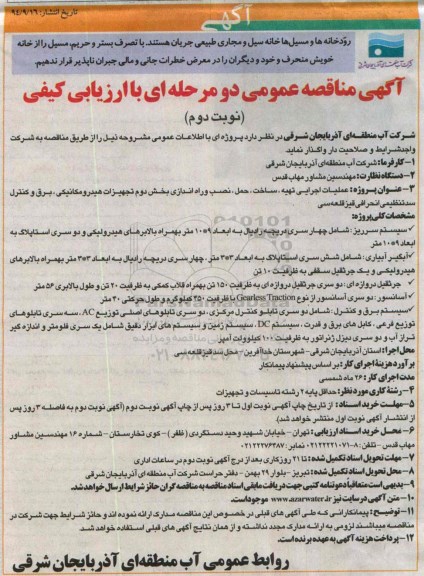 آگهی
تاریخ انتشار: ۹۴/۹/۱۶
رودخانه ها و مسیل‌ها خانه سیل و مجاری طبیعی جریان هستند. با تصرف بستر و حریم، مسیل را از خانه
خویش منحرف و خود و دیگران را در معرض خطرات جانی و مالی جبران ناپذیر قرار ندهیم.
آگهی مناقصه عمومی دو مرحله ای با ارزیابی کیفی
(نوبت دوم)
شرکت آب منطقه‌ای آذربایجان شرقی در نظر دارد پروژه ای با اطلاعات عمومی مشروحه ذیل را از طریق مناقصه به شرکت
واجدشرایط و صلاحیت دار واگذار نماید
۱- کارفرما: شرکت آب منطقه‌ای آذربایجان شرقی
۲- دستگاه نظارت: مهندسین مشاور مهاب قدس
۳- عنوان پروژه: عملیات اجرایی تهیه ، ساخت ، حمل ، نصب و راه اندازی بخش دوم تجهیزات هیدرومکانیکی ، برق و کنترل
سد تنظیمی انحرافی قیز قلعه سی
مشخصات کلی پروژه:
✓سیستم سرریز: شامل چهار سری دریچه رادیال به ابعاد ۹*۱۰ متر بهمراه بالابرهای هیدرولیکی و دو سری استاپلاگ به
ابعاد ۹*۱۰ متر
✓آبگیر آبیاری: شامل شش سری استاپلاگ به ابعاد ۳*۳ متر، چهار سری دریچه رادیال به ابعاد ۳*۳ متر بهمراه بالابرهای
هیدرولیکی و یک جرثقیل سقفی به ظرفیت ۱۰ تن
✓ جرثقیل دروازه ای: دو سری جرثقیل دروازه ای به ظرفیت ۱۵۰ تن بهمراه قلاب کمکی به ظرفیت ۲۰ تن و طول بالابری ۵۶ متر
✓آسانسور: دو سری آسانسور از نوع Gearless Traction با ظرفیت ۳۵۰ کیلوگرم و طول حرکتی ۳۰ متر
✓سیستم برق و کنترل: شامل دو سری تابلو کنترل مرکزی ، دو سری تابلوهای اصلی توزیع AC ، سه سری تابلوهای
توزیع فرعی ، کابل های برق و قدرت ، سیستم DC ، سیستم زمین و سیستم های ابزار دقیق شامل یک سری فلومتر و اندازه گیر
تراز آب و دو سری دیزل ژنراتور به ظرفیت ۱۰۰ کیلوولت آمپر
محل اجرا: استان آذربایجان شرقی - شهرستان خداآفرین - محل سد قیز قلعه سی
برآورد هزینه اجرای کار: بر اساس پیشنهاد پیمانکار
مدت اجرای کار: ۲۶ ماه شمسی
۴- رشته کاری مورد نظر: حداقل پایه ۲ رشته تاسیسات و تجهیزات
۵- مهلت خرید اسناد : از تاریخ چاپ آگهی نوبت اول تا ۳ روز پس از چاپ آگهی نوبت دوم (آگهی نوبت دوم به فاصله ۳ روز پس
از انتشار آگهی نوبت اول منتشر خواهد شد).
۶- محل خرید اسناد ارزیابی: تهران - خیابان شهید وحید دستگردی (ظفر) - کوی تخارستان - شماره ۱۶ مهندسین مشاور
مهاب قدس - تلفن: ۸-۰۲۱۲۲۲۲۱۰۷۱ نمابر: ۰۲۱۲۲۲۷۶۳۸۷
۷- مهلت تحویل اسناد تکمیل شده: تا ۲۱ روز کاری بعد از درج آگهی نوبت دوم در ساعات اداری
۸- محل تحویل اسناد تکمیل شده: تبریز - بلوار ۲۹ بهمن - دفتر حراست شرکت آب منطقه ای آذربایجان شرقی
۹- بدیهی است متعاقباً دعوتنامه کتبی جهت دریافت مابقی اسناد مناقصه به مناقصه گران حائز شرایط ارسال خواهد شد.
۱۰- متن آگهی در سایت نیز www.azarwater.ir موجود است.
۱۱- توضیح: پیمانکارانی که طی آگهی های قبلی در خصوص این مناقصه مدارک ارائه نموده اند و حائز شرایط جهت شرکت در
مناقصه میباشند لزومی به ارائه مدارک مجدد نداشته و از همان نتایج آگهی های قبلی استفاده خواهد شد.
۱۲- پرداخت هزینه آگهی به عهده برنده است.
روابط عمومی آب منطقه‌ای آذربایجان شرقی